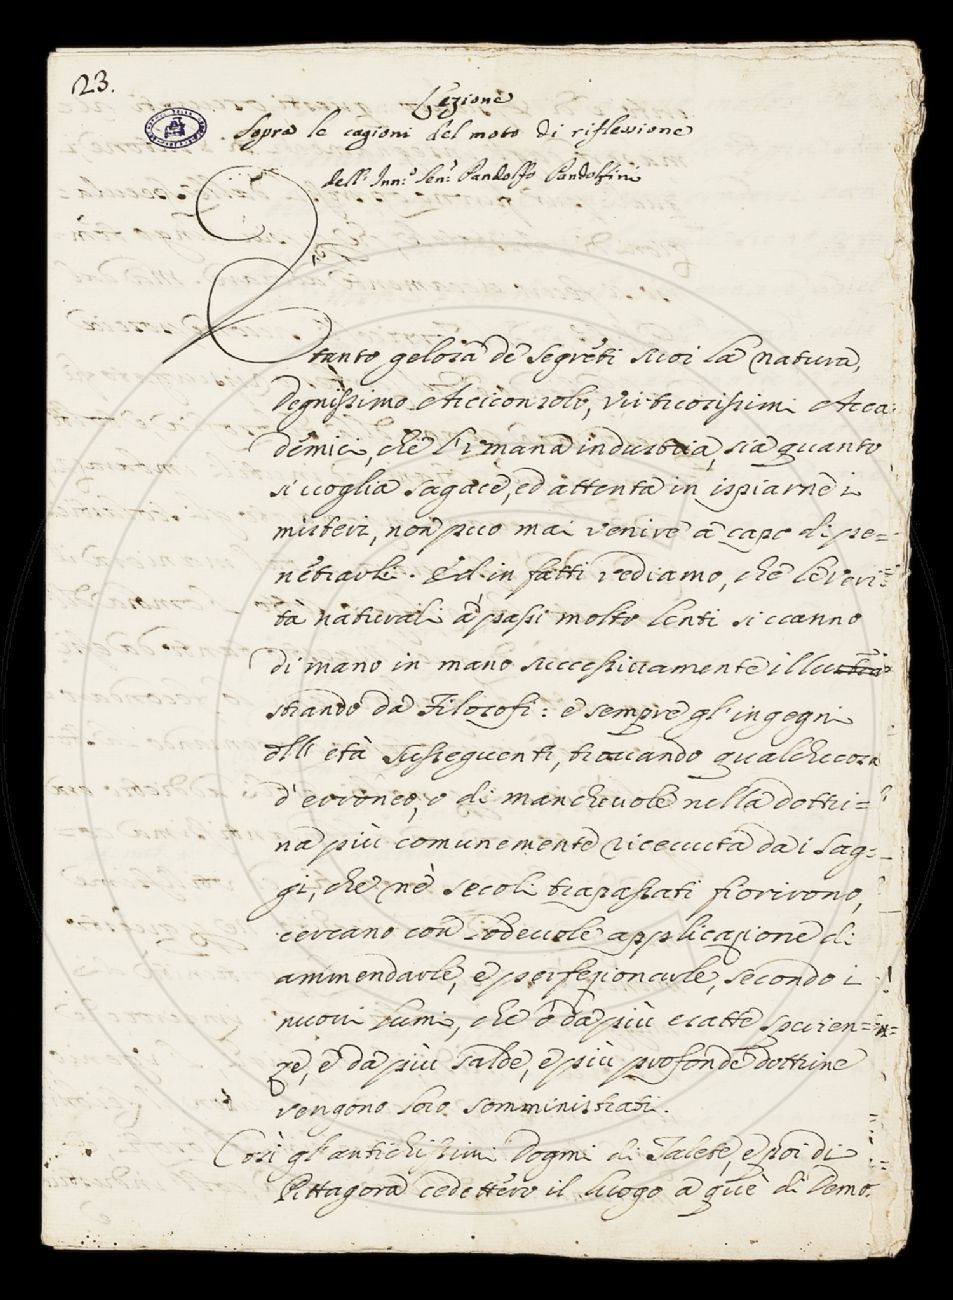 23.
Lezione
Sopra le cagioni del moto di riflessione
dell' Inn.º Sen.r Pandolfo Pandolfini
È
tanto gelosa de segreti suoi la natura,
Degnissimo Arciconsolo, virtuosissimi Acca-
demici, che l'umana industria, sia quanto
si voglia sagace, ed attenta in ispiarne i
misteri, non puo mai venire a capo di pe=
netrarli. Ed in fatti vediamo, che le veri=
tà naturali a passi molto lenti si vanno
di mano in mano successivamente illu
strando da Filosofi: e sempre gl'ingegni
dell' età susseguenti, trovando qualche cosa
d'erroneo, o di manchevole nella dottri=
na più comunemente ricevuta da i sag=
gi, che ne' secoli trapassati fiorirono,
cercano con lodevole applicazione di
ammendarle, e perfezionarle, secondo i
nuovi lumi, che o da più esatte sperien=
ze, e da più salde, e più profonde dottrine
vengono loro somministrati.
Così gl'antichissimi Dogmi di Talete, e poi di
Pittagora cedettero il luogo a que' di Demo.